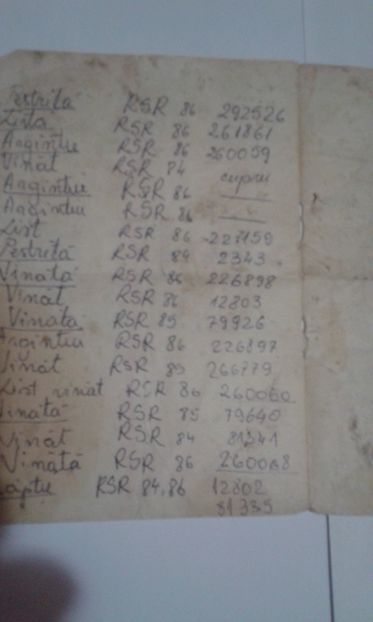 Pestrită RSR 86 292526
Lista RSR 86 261861
Argintiu RSR 86 260059
Vinăt RSR 84 cupru
Argintiu RSR 86 —
Argintiu RSR 86 —
List RSR 86 228159
Pestrită RSR 89 2343
Vinătă RSR 86 226898
Vinăt RSR 86 12803
Vinătă RSR 85 79926
Argintiu RSR 86 226897
Vinăt RSR 85 266779
List vinăt RSR 86 260060
Vinătă RSR 85 79640
Vinăt RSR 84 81341
Vinătă RSR 86 260068
Lăptiu RSR 84,86 12802
81335